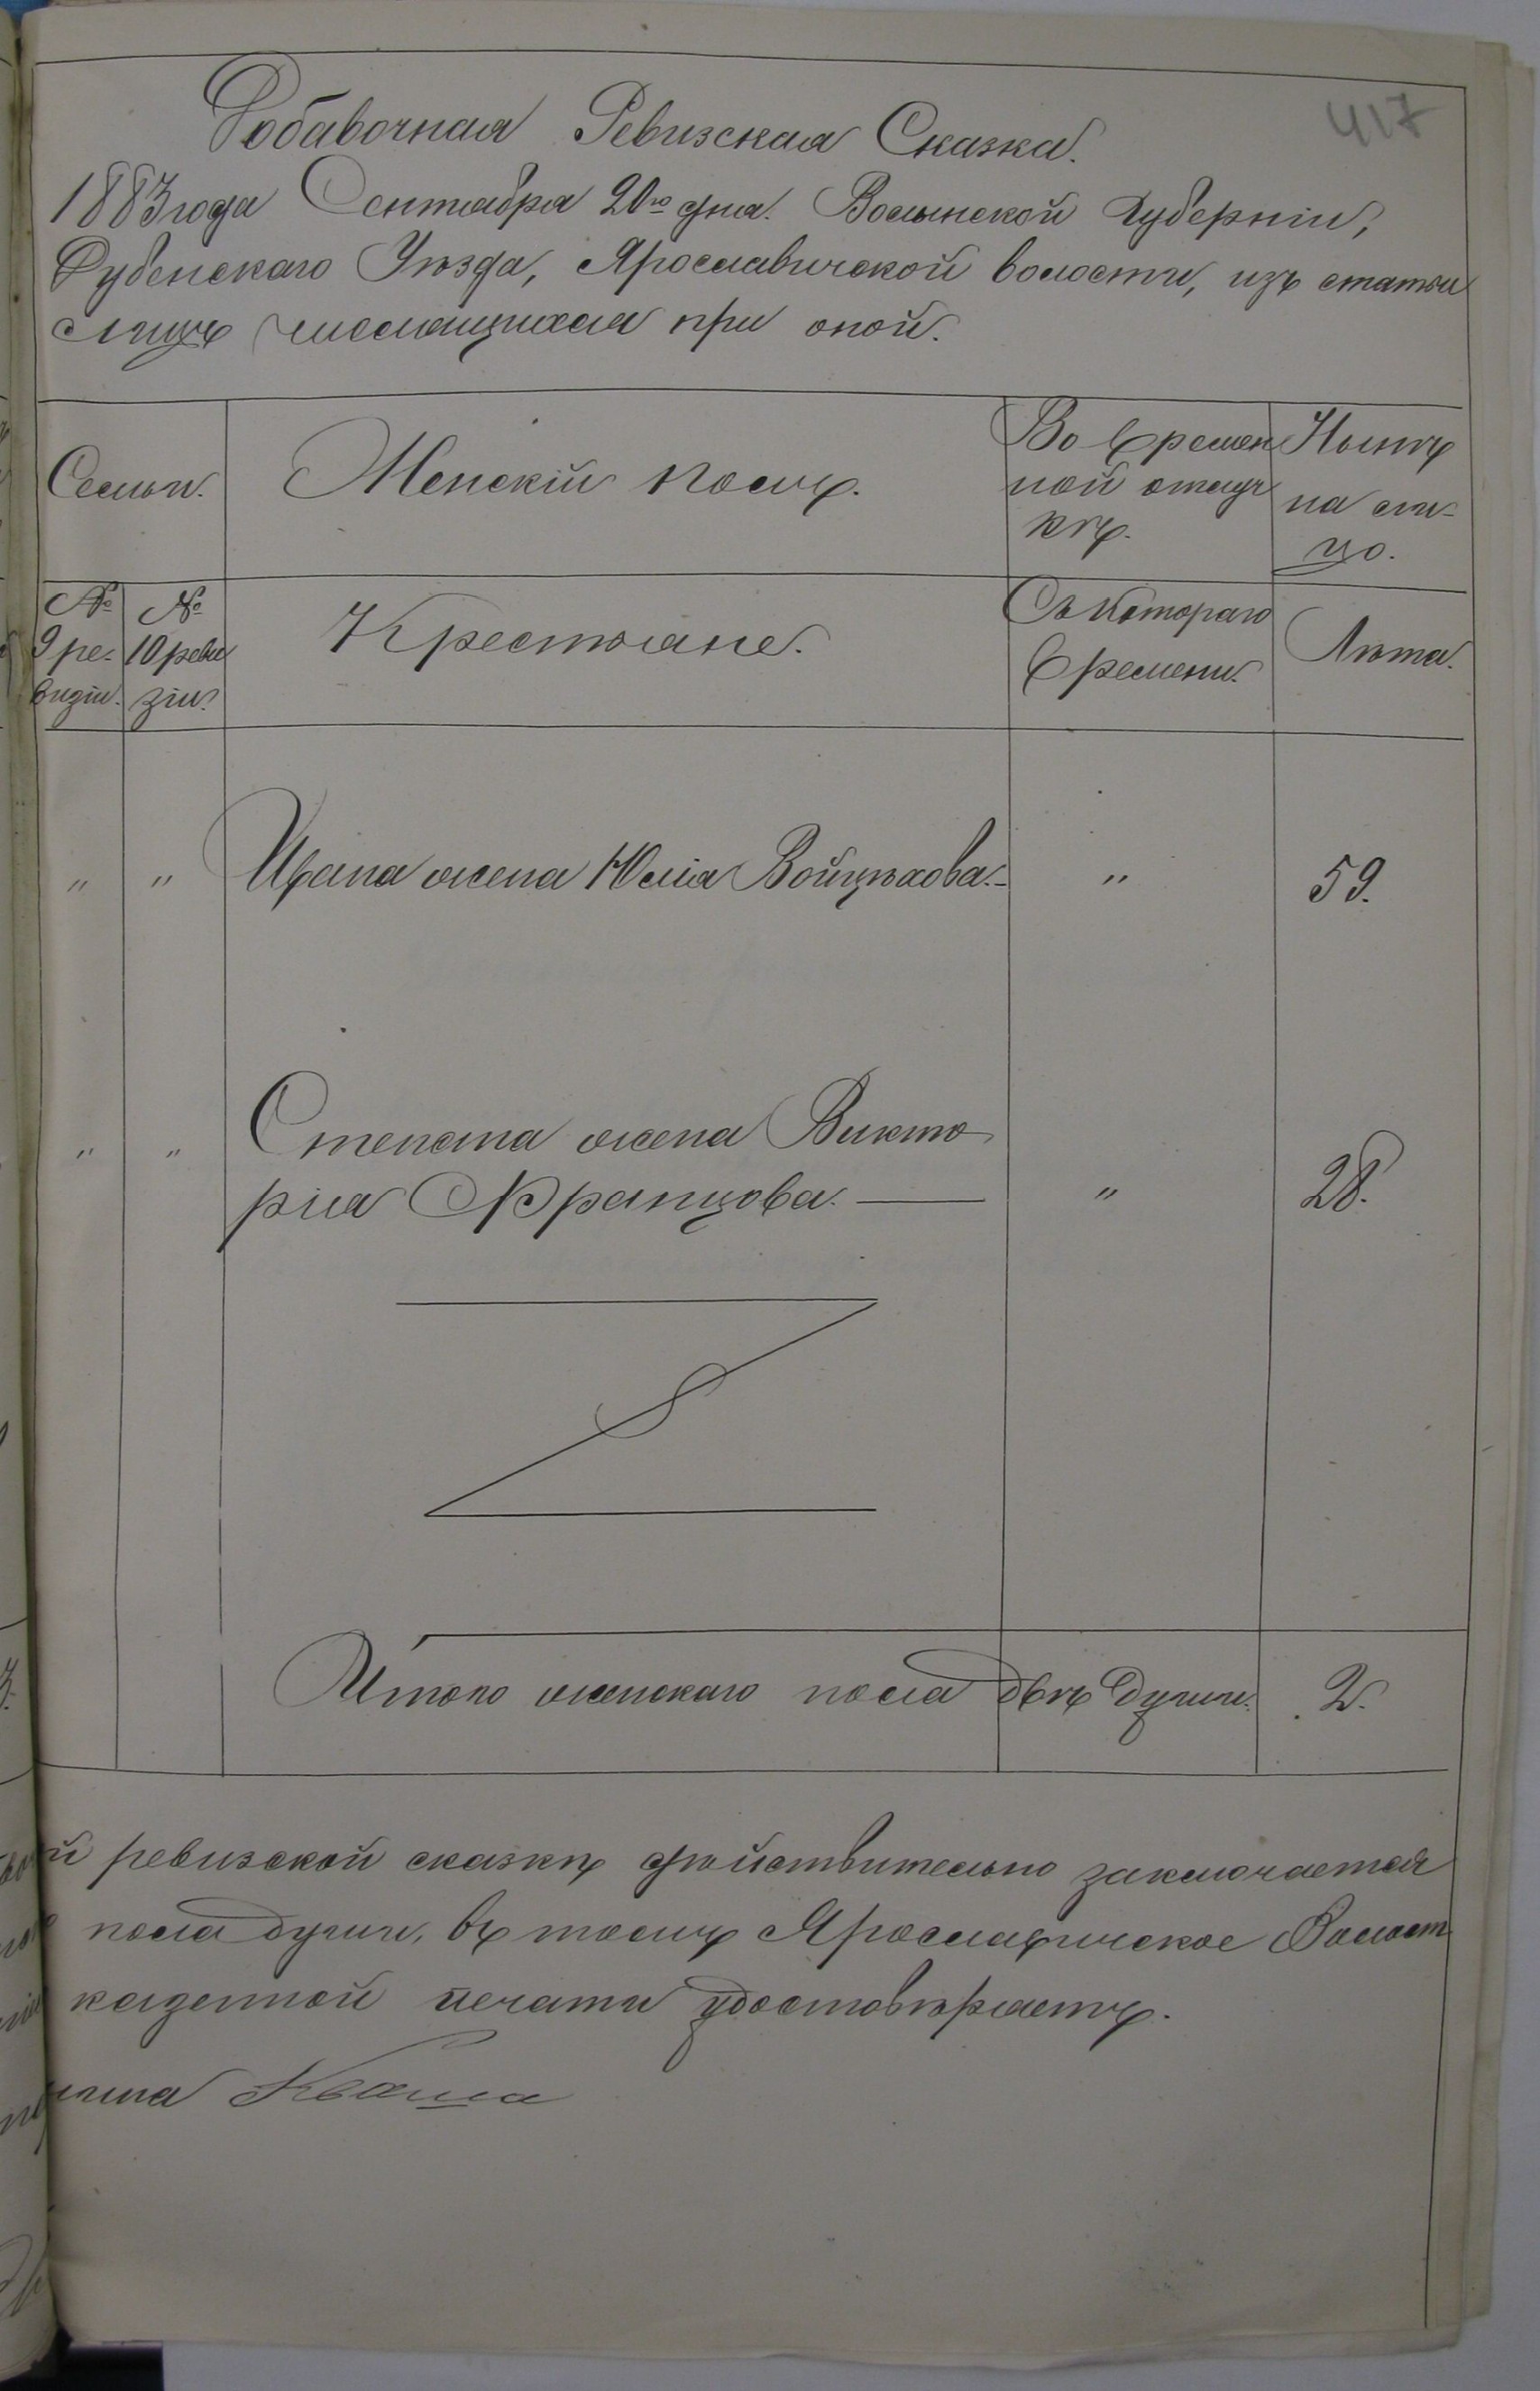 417
Добавочная Ревизская Сказка.
1883 года Сентября 20го дня. Волынской Губерніи,
Дубенскаго Уѣзда, Ярославичской волости, изъ статьи
лицъ числящихся при оной.
Семьи.
Женскій полъ.
Во времен
ной отлуч
кѣ.
Нынѣ
на ли-
цо.
№ 9 ре-
визіи.
№ 10 реви
зіи.
Крестьяне.
Съ котораго
времени.
Лѣта.
" " Ивана жена Юлія Войцѣхова.- " 59.
" " Степана жена Викто
рія Францова. — " 28.
Итого женскаго пола двѣ души. 2.
й ревизской сказкѣ дѣйствительно заключается
пола души, въ томъ Ярославичское Волост
казенной печати удостовѣряетъ.
Кваша